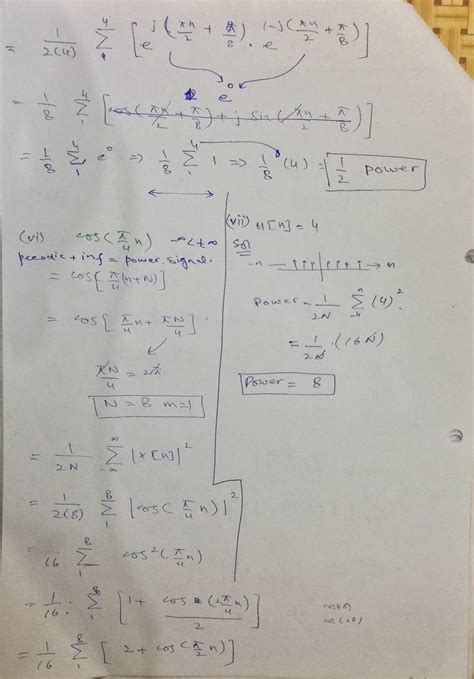 = 1/2(4) Σ_1^4 [e^{j(πn/2 + π/8)} . e^{(-j(πn/2 + π/8)}]
e^0
= 1/8 Σ_1^4 [cos(πn/2 + π/8) + j sin(πn/2 + π/8)]
= 1/8 Σ_1^4 e^0 ⇒ 1/8 Σ_1^4 1 ⇒ 1/8 (4) = 1/2 power
(vi) cos(π/4 n) -∞<t<∞
periodic + inf = power signal.
= cos[π/4 (n+N)]
= cos[π/4 n + πN/4]
πN/4 = 2π
N = 8 m=1
= 1/2N Σ_{-∞}^{∞} |x[n]|^2
= 1/2(8) Σ_1^8 |cos(π/4 n)|^2
= 1/16 Σ_1^8 cos^2(π/4 n)
= 1/16 : Σ_1^8 [1 + cos 2(2π/4 n)/2]
= 1/16 Σ_1^8 [2 + cos(π/2 n)]
(vii) x[n] = 4
Sol
-n n
Power = 1/2N Σ_{-n}^{n} (4)^2
= 1/2N . (16N)
Power = 8